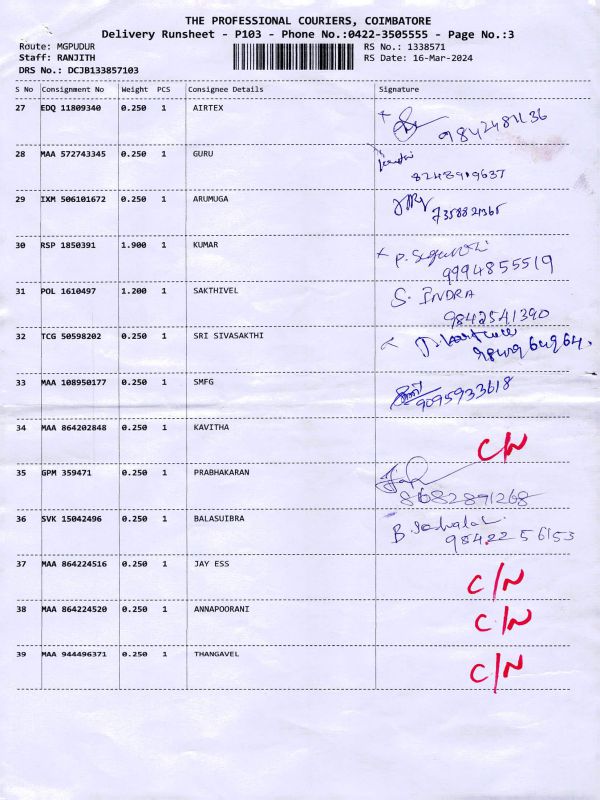 THE PROFESSIONAL COURIERS, COIMBATORE
Delivery Runsheet - P103 - Phone No.:0422-3505555 - Page No.:3
Route: MGPUDUR RS No.: 1338571
Staff: RANJITH RS Date: 16-Mar-2024
DRS No.: DCJB133857103
S No Consignment No Weight PCS Consignee Details Signature
27 EDQ 11809340 0.250 1 AIRTEX
9842481136
28 MAA 572743345 0.250 1 GURU
8248909637
29 IXM 506101672 0.250 1 ARUMUGA
7358821365
30 RSP 1850391 1.900 1 KUMAR
9994855519
31 POL 1610497 1.200 1 SAKTHIVEL S. INDRA
9842541390
32 TCG 50598202 0.250 1 SRI SIVASAKTHI
33 MAA 108950177 0.250 1 SMFG
9095933618
34 MAA 864202848 0.250 1 KAVITHA C/N
35 GPM 359471 0.250 1 PRABHAKARAN
8682891268
36 SVK 15042496 0.250 1 BALASUIBRA
9842256153
37 MAA 864224516 0.250 1 JAY ESS C/N
38 MAA 864224520 0.250 1 ANNAPOORANI C/N
39 MAA 944496371 0.250 1 THANGAVEL C/N